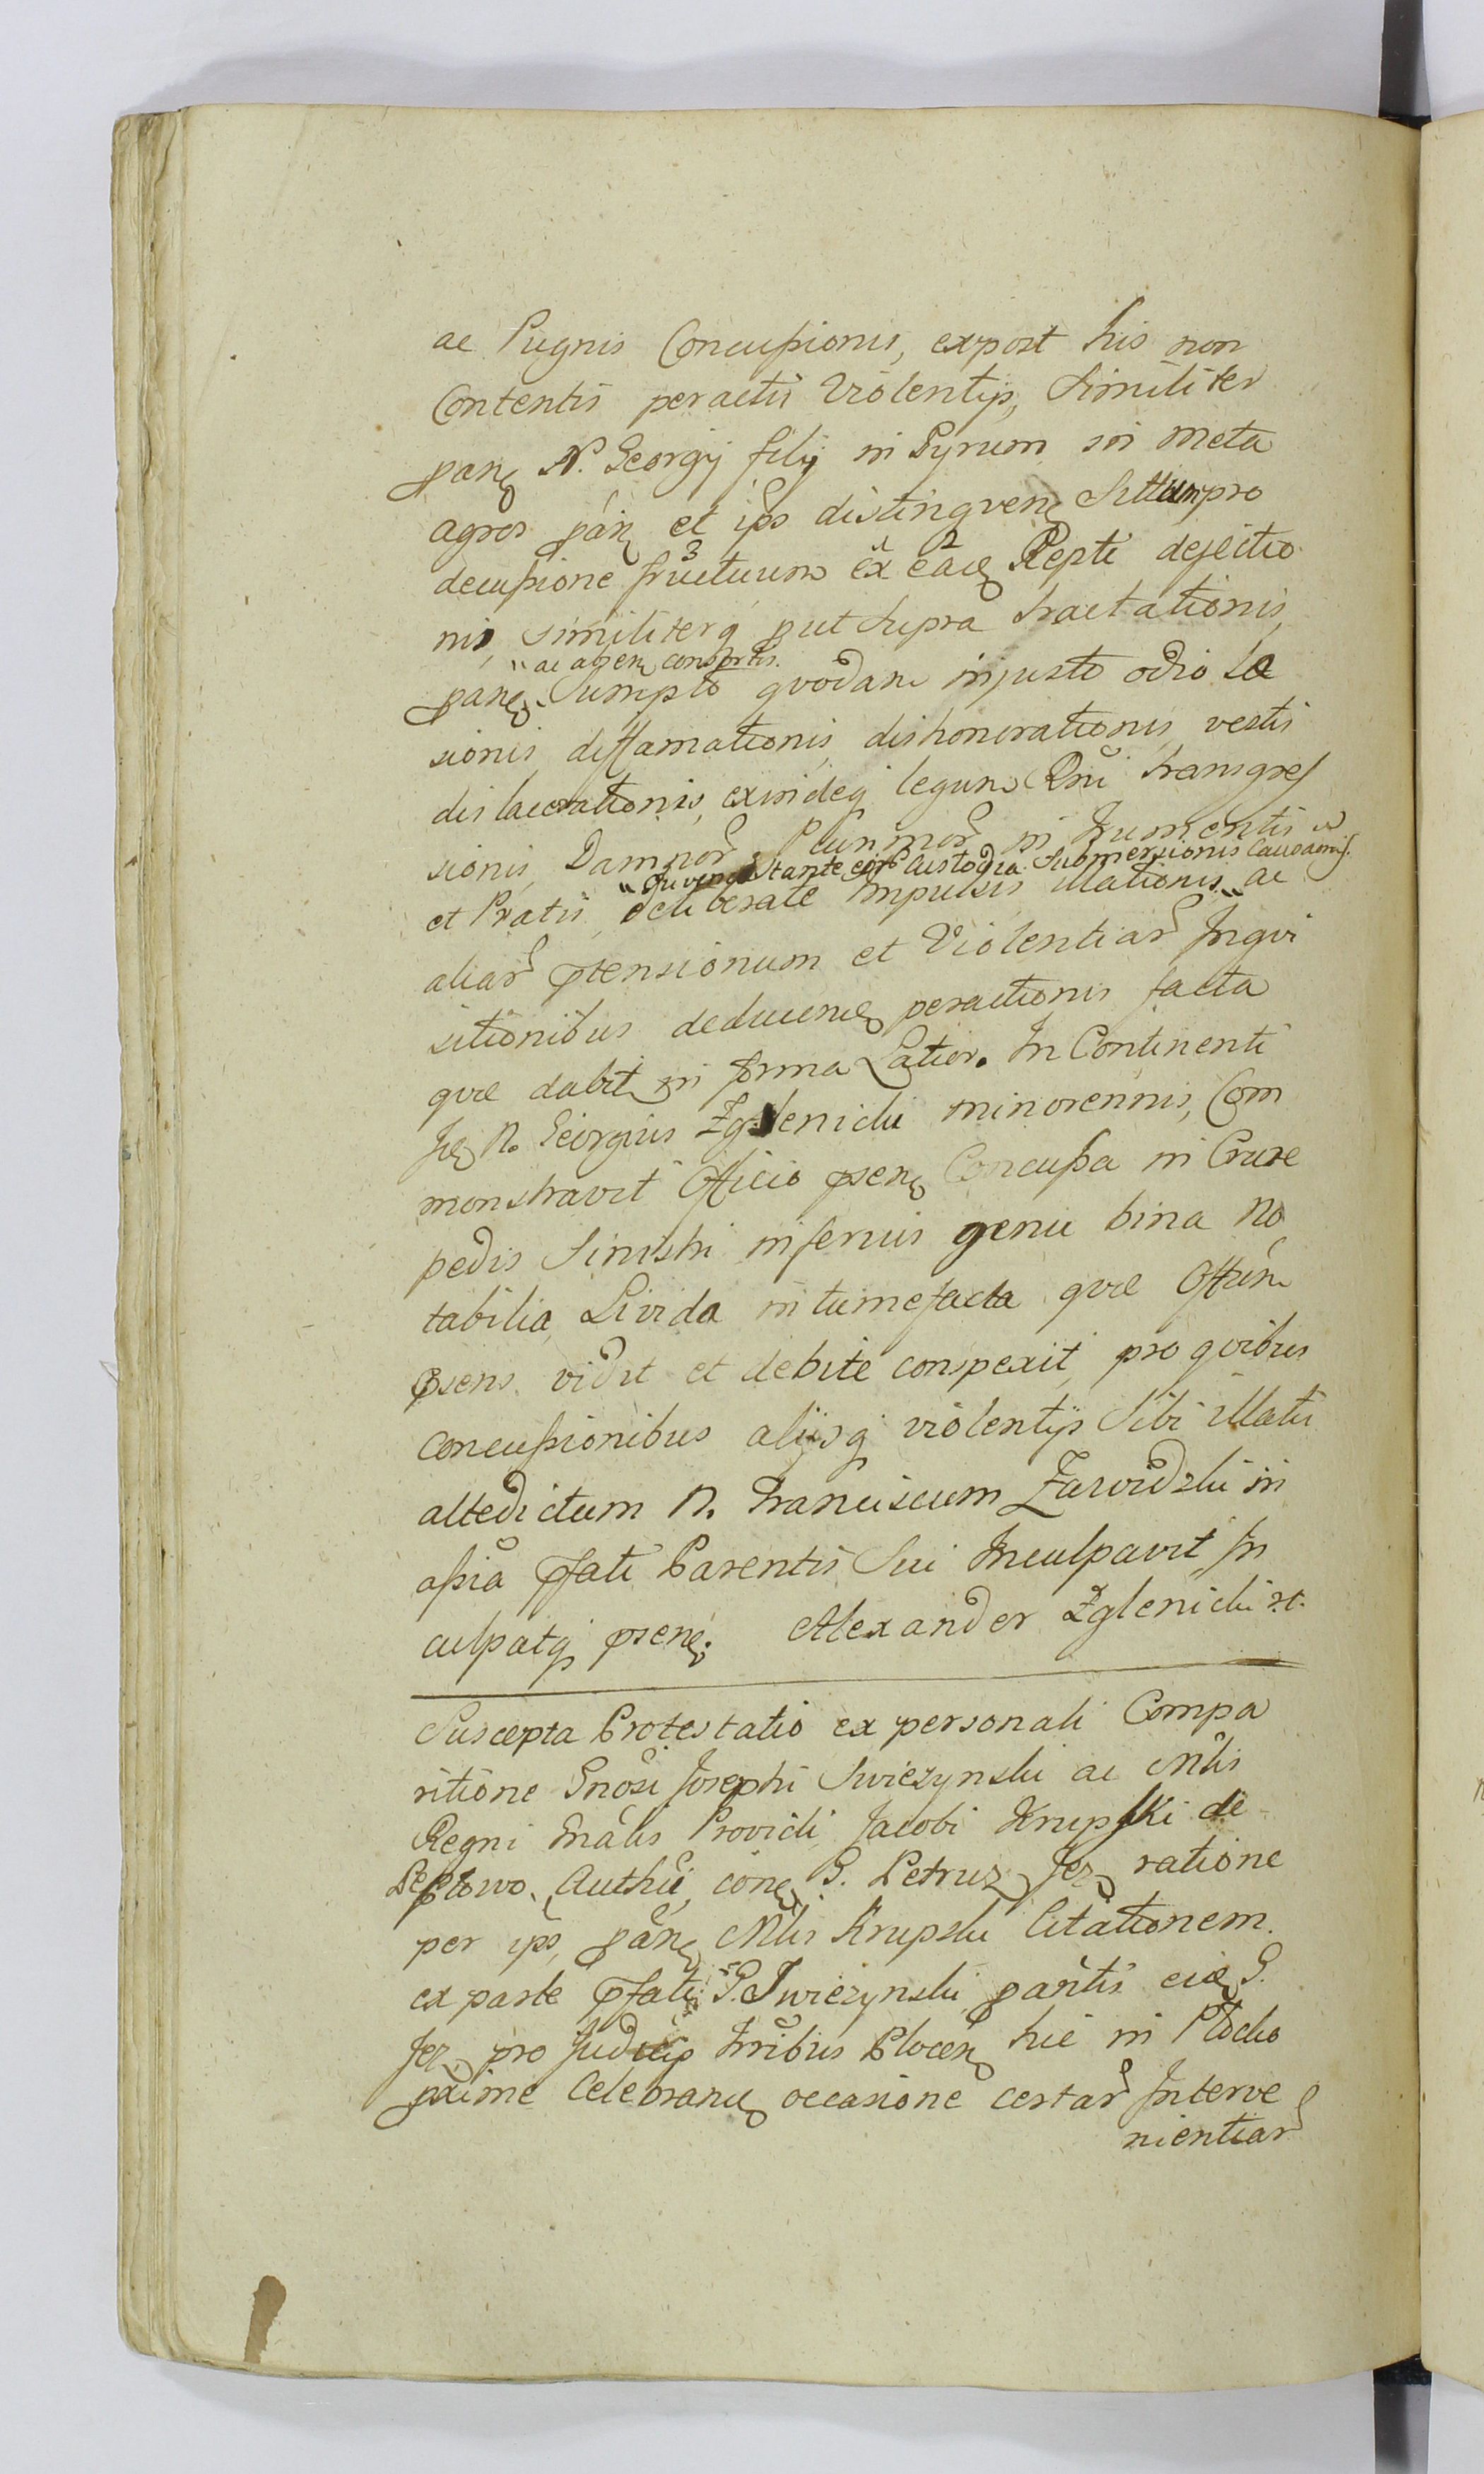 ac Pugnis Concußionis, expost his non
Contentis peractis Violentijs, Similiter
N. Georgij filij in Pyrum in meta
agros et ips distingven Sittum pro
decußione fructuum ex Repti dejectio
nis, similiterq put supra tractationis,
" ac consortis.
Sumpto qvodam injusto odio Lae
sionis, diffamationis, dishonorationis, vestis
dis lacerationis, exindeq legum Rni transgres
sionis, Damnor Plurimor in Frumentis
stante Custodia Submersionis
et Pratis, deliberate Impulsis illationis " ac
aliar ptensionum et Violentiar Inqvi
sitionibus deducen peractionis facta
qvae dabit in forma Latior. In Continenti
N. Georgius Zglenicki minorennis, Com
monstravit Officio psen Concußa in Crure
pedis Sinistri inferius genu bina No
tabilia Livida intumefacta qvae Offum
psens vidit et debite conspexit, pro qvibus
concußionibus alijsq violentijs Sibi illatis
altedictum N. Franciscum Zawidzki in
aßia pfati Parentis Sui Inculpavit In
culpatq psen. Alexander Zglenicki
Suscepta Protestatio ex personali Compa
ritione Gnosi Josephi Swiezynski ac Mlis
Regni Gnalis Providi Jacobi Krupski de
G. Petrus Jez ratione
per ips, Mlis Krupski Citationem
ex parte pfati G. Swiezynski G.
Jez pro Judicijs Trribus Plocen hic in Plocko
pxime Celebran occasione certar Interve
nientiar